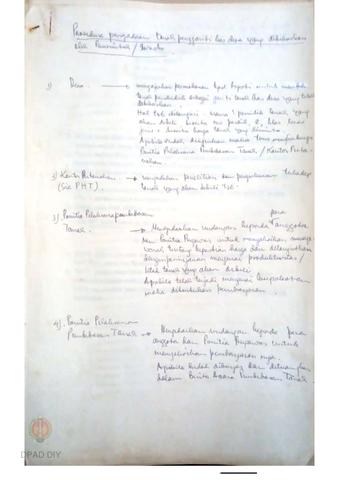 Prosedur pengadaan tanah pengganti kas desa yang dibebaskan
oleh Pemerintah / Swasta
1) Desa → mengajukan permohonan kpd Bupati untuk membeli
tanah penduduk sebagai tanah kas desa yang telah
dibebaskan.
Hal tsb dilampiri : nama pemilik tanah yang
akan dibeli luas
harga tanah yang diminta.
Apabila sudah
Panitia Pelaksana Pembebasan Tanah / Kantor Perta-
nahan.
2) Kantor Pertanahan → mengadakan penelitian dan pengukuran terhadap
(Sie PHT) tanah yang akan dibeli tsb.
3) Panitia Pelaksana pembebasan
Tanah → Mengadakan undangan kepada para Tanggota
dan Panitia Pengawas untuk mengadakan musya-
warah tentang kepastian harga dan dilanjutkan
dengan peninjauan mengenai produktivitas /
letak tanah yang akan dibeli.
Apabila telah terjadi mengenai kesepakatan
maka dilakukan pembayaran.
4) Panitia Pelaksanaan
Pembebasan Tanah → Mengadakan undangan kepada para
anggota dan Panitia Pengawas untuk
menyaksikan pembayaran nya.
Apabila sudah dibayar dan dituangkan
dalam Berita Acara Pembebasan Tanah
DPAD DIY